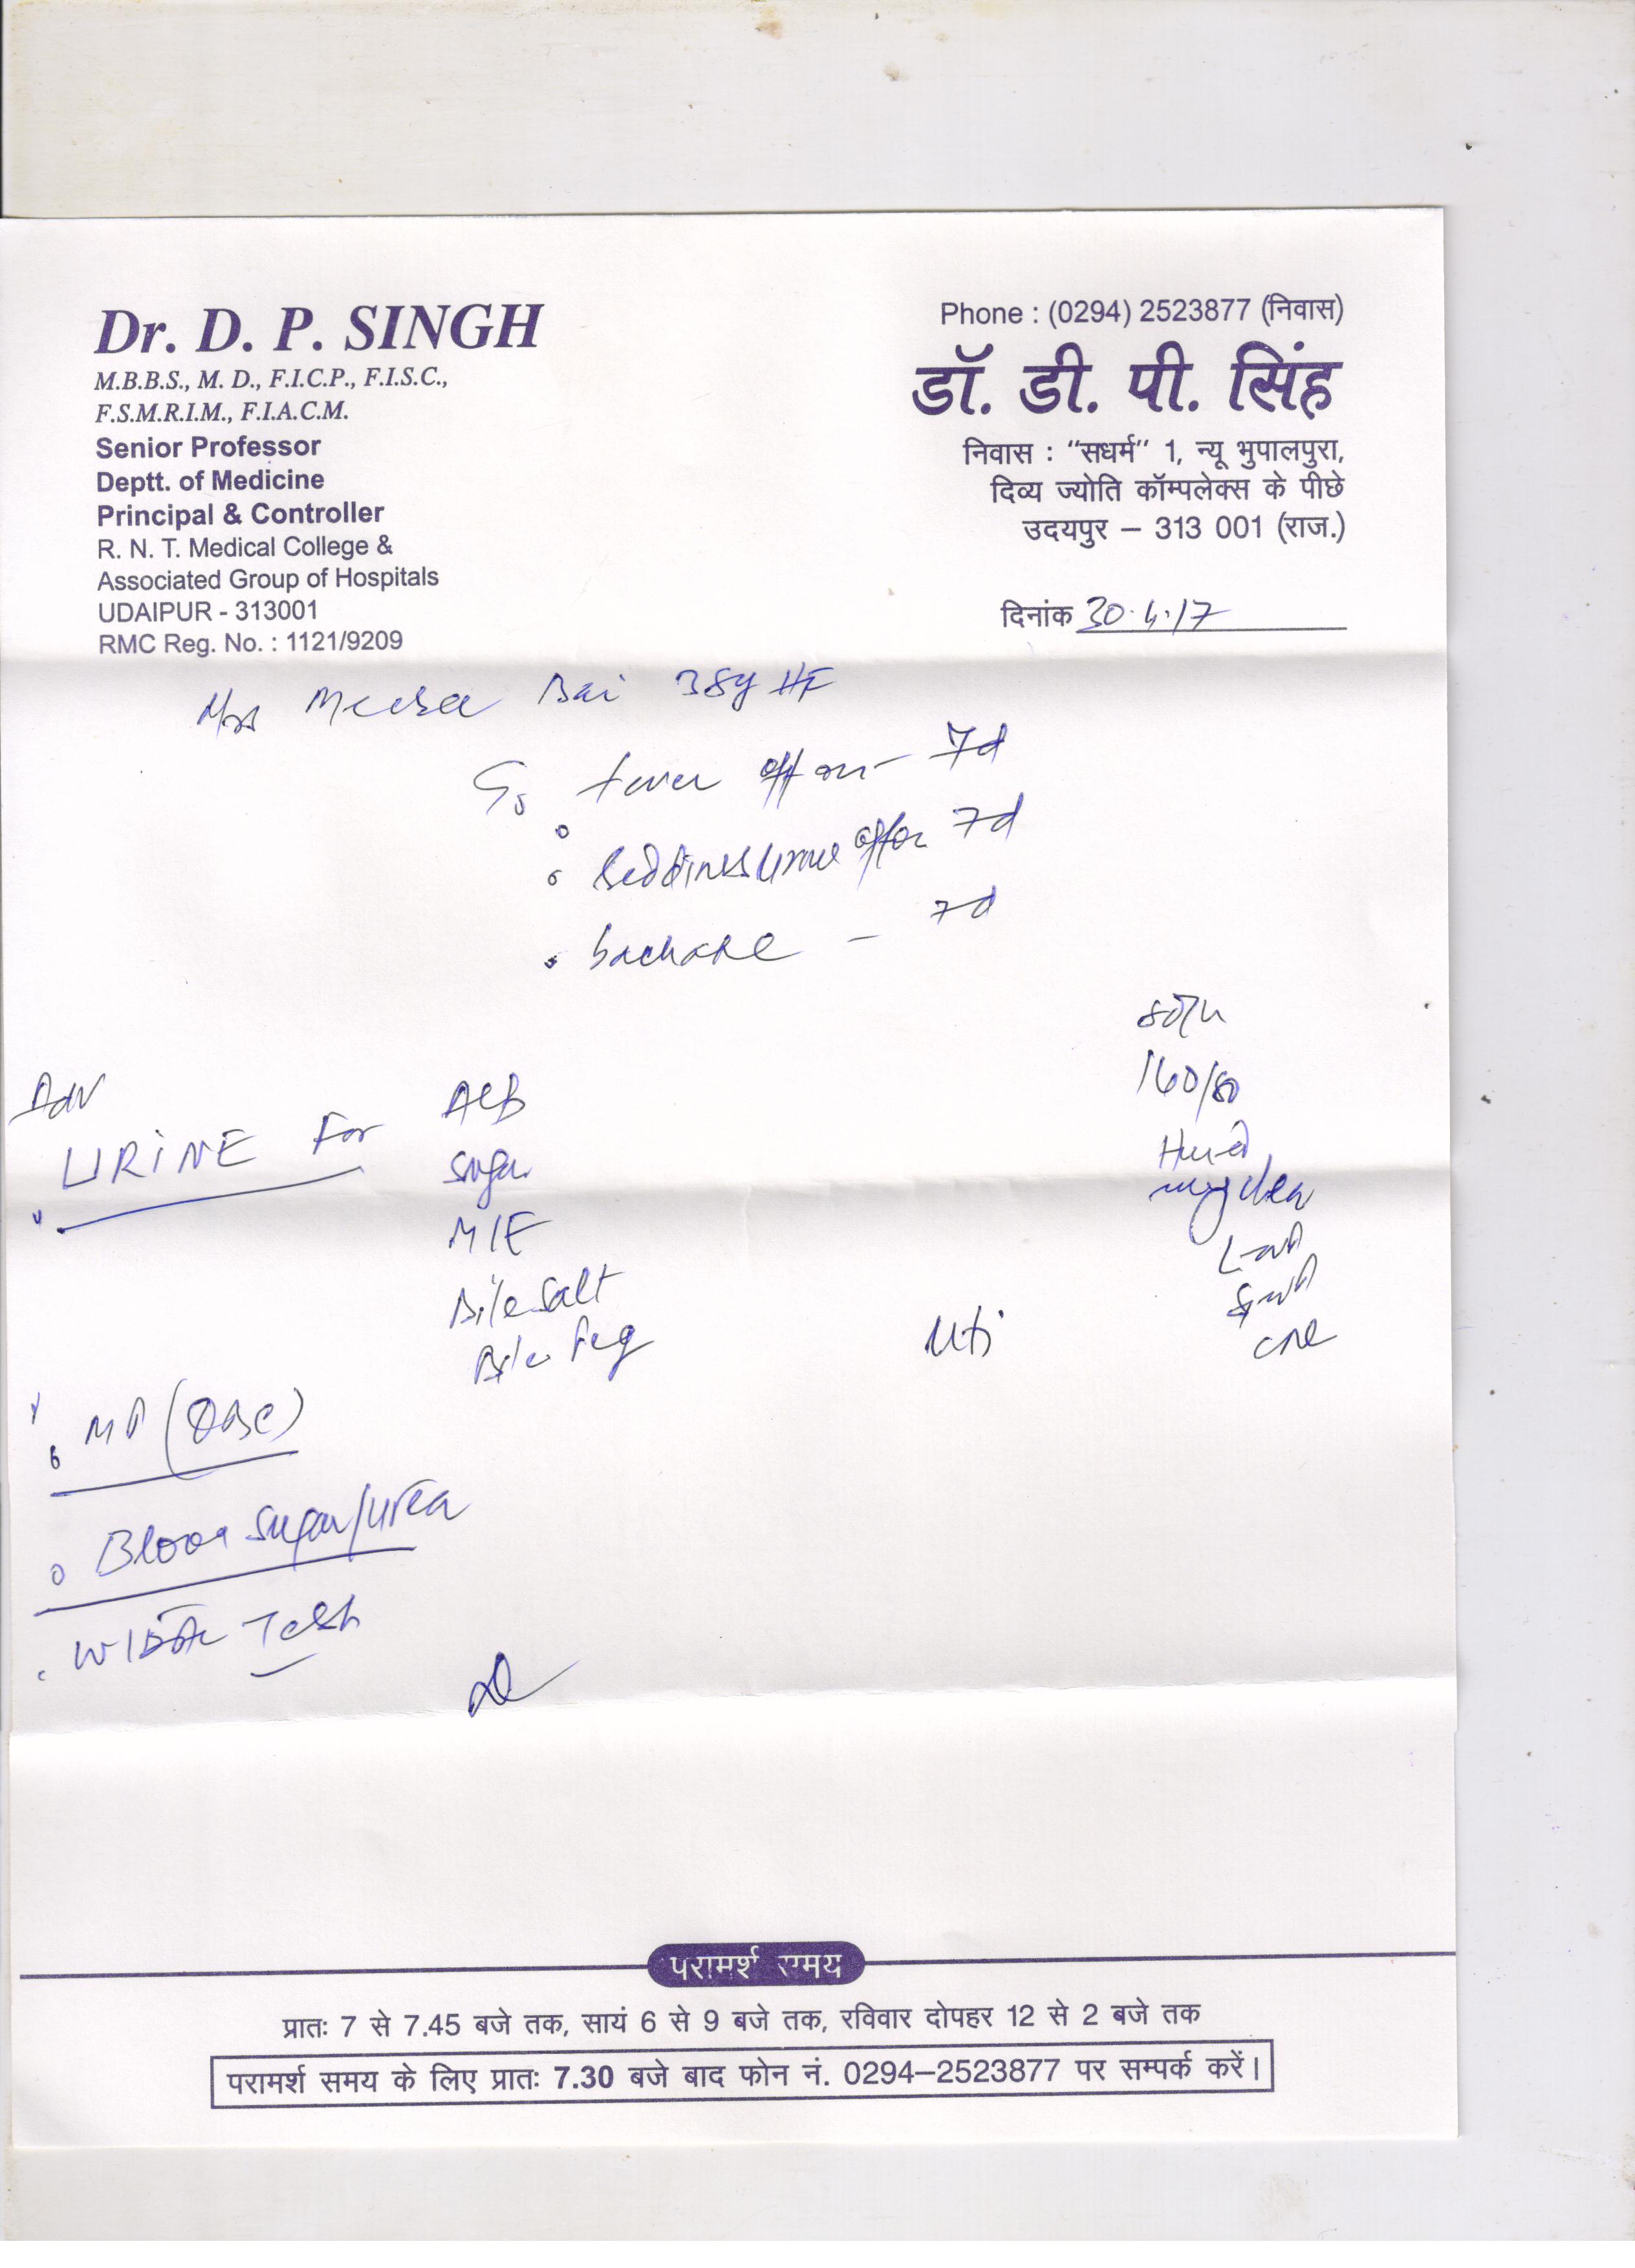 Dr. D. P. SINGH
M.B.B.S., M. D., F.I.C.P., F.I.S.C.,
F.S.M.R.I.M., F.I.A.C.M.
Senior Professor
Deptt. of Medicine
Principal & Controller
R. N. T. Medical College &
Associated Group of Hospitals
UDAIPUR - 313001
RMC Reg. No. : 1121/9209
Phone : (0294) 2523877 (निवास)
डॉ. डी. पी. सिंह
निवास : “सधर्म” 1, न्यू भुपालपुरा,
दिव्य ज्योति कॉम्पलेक्स के पीछे
उदयपुर – 313 001 (राज.)
दिनांक 30.4.17
Mrs Bai 38y HF
fever off on - 7d
urine off on 7d
- 7d
Adv
URINE For
ALB
Sugar
M/E
Bile Salt
Bile
80/m
160/80
Uti
MP (QBC)
Blood Sugar/Urea
WIDAL Test
परामर्श समय
प्रातः 7 से 7.45 बजे तक, सायं 6 से 9 बजे तक, रविवार दोपहर 12 से 2 बजे तक
परामर्श समय के लिए प्रातः 7.30 बजे बाद फोन नं. 0294–2523877 पर सम्पर्क करें।